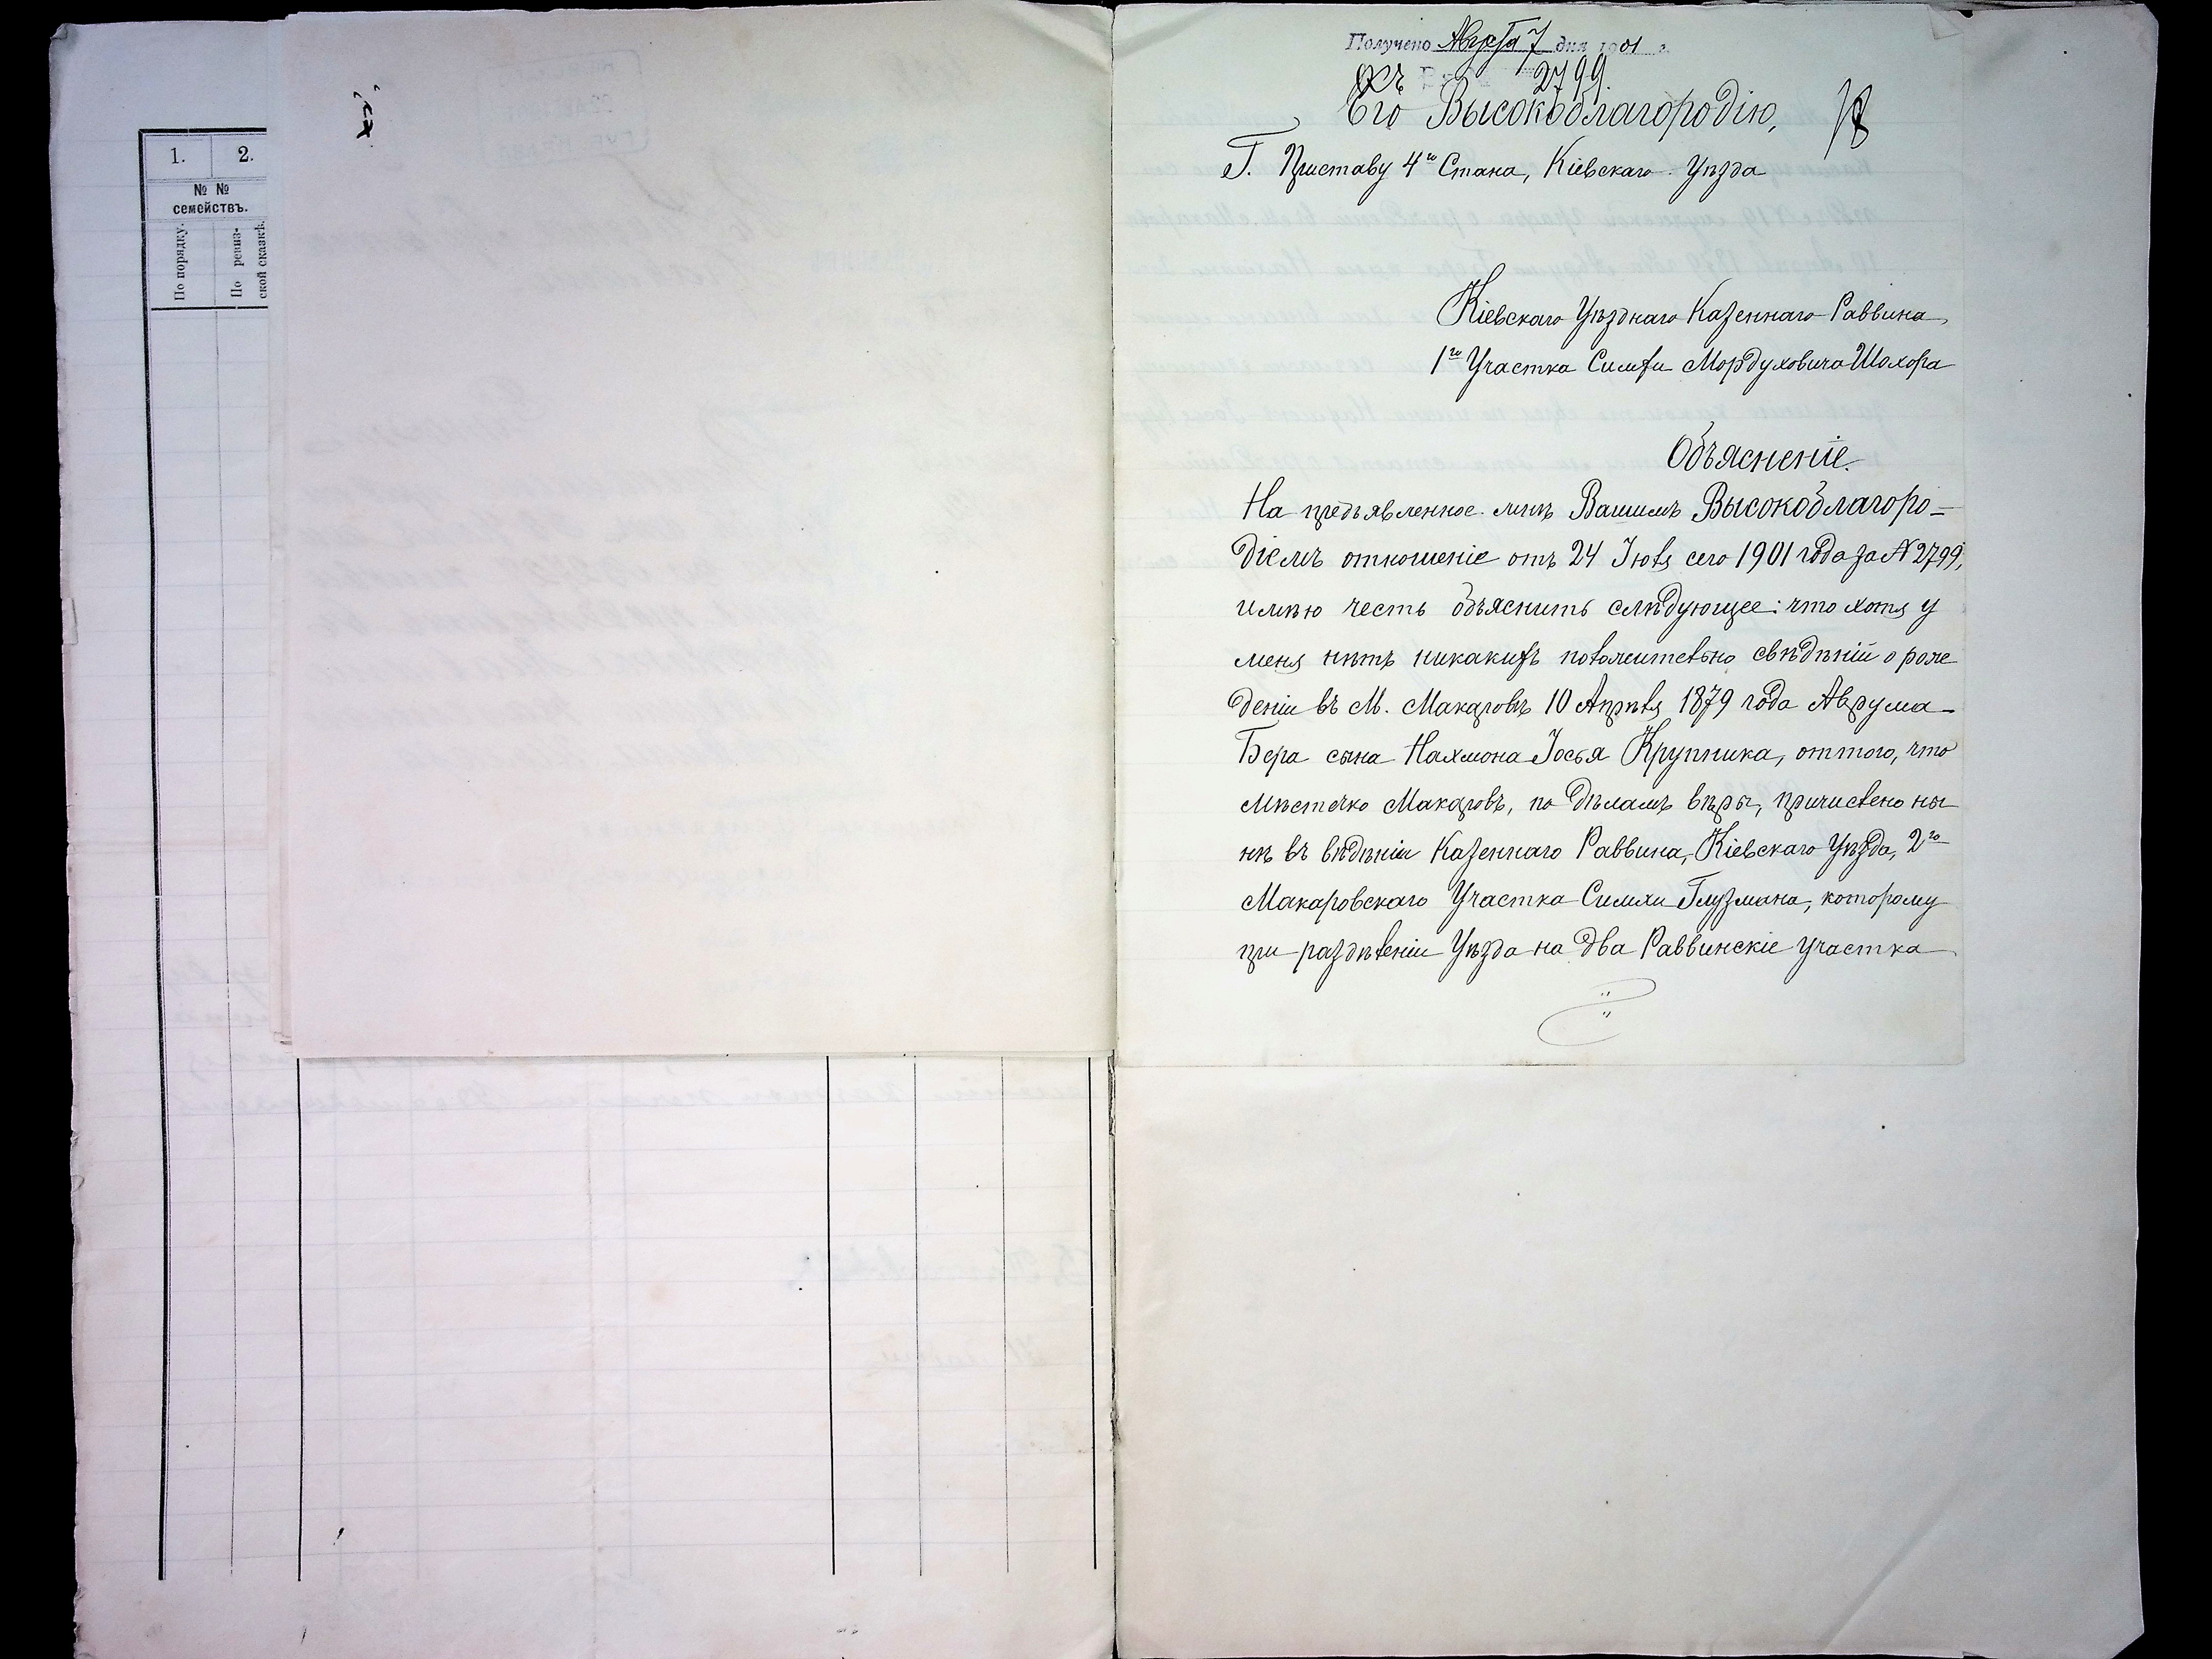 1. 2.
№ № семействъ.
По порядку.
По ревиз-
ской сказкѣ.
Получено Августа 7 дня 1901 г.
Къ 2799.
Его Высокоблагородію,
Г. Приставу 4го Стана, Кіевскаго Уѣзда
Кіевскаго Уѣзднаго Казеннаго Раввина,
1го Участка Симхи Мордуховича Шохора
Объясненіе.
На предъявленное мнѣ Вашимъ Высокоблагоро-
діемъ отношеніе отъ 24 Іюля сего 1901 года за № 2799,
имѣю честь объяснить слѣдующее: что хотя у
меня нѣтъ никакихъ положительно свѣдѣній о рож
деніи въ М. Макаровѣ 10 Апрѣля 1879 года Аврума-
Бера сына Нахмона Іосья Крупника, оттого, что
мѣстечко Макаровъ, по дѣламъ вѣры, причислено ны
нѣ въ вѣдѣніи Казеннаго Раввина, Кіевскаго Уѣзда, 2го
Макаровскаго Участка Симхи Глузмана, которому
при раздѣленіи Уѣзда на два Раввинскіе участка